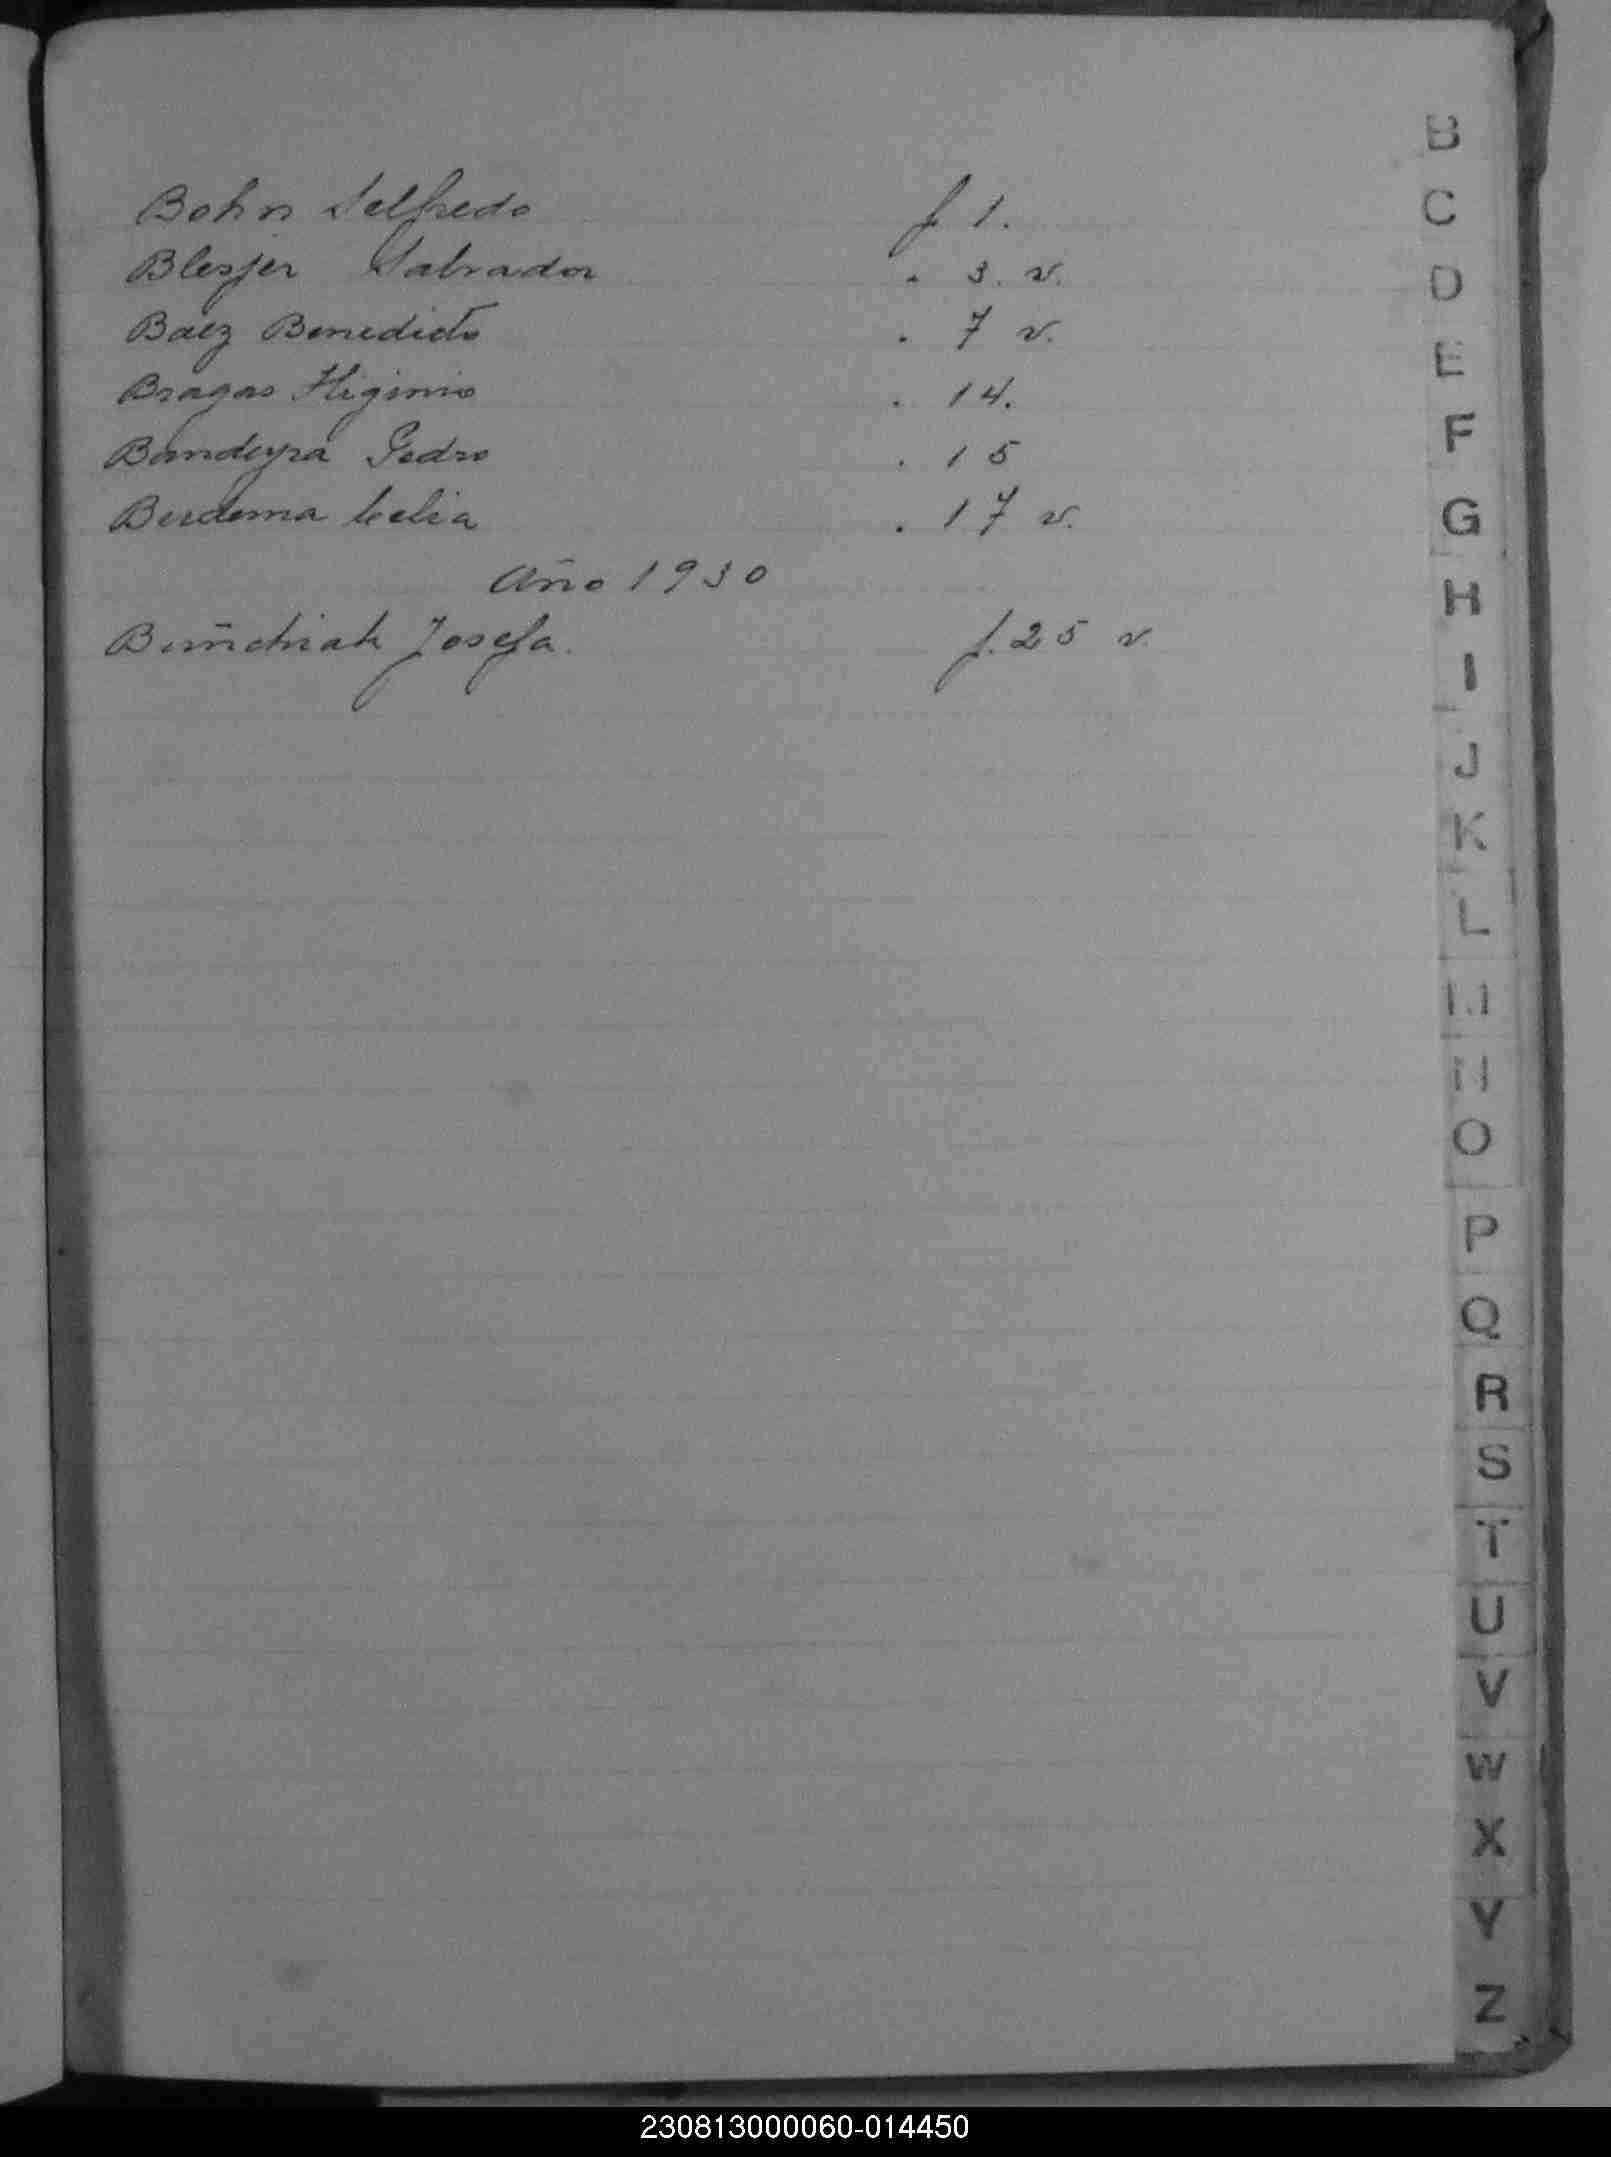 Bohn Selfredo f 1.
Blesjer Salvador . 3. v.
Baez Benedicto . 7 v.
Bragas Higinio . 14.
Bandeyra Pedro . 15
Berdema Celia . 17 v.
Año 1930
Josefa. f. 25 v.
B
C
D
E
F
G
H
I
J
K
L
M
N
O
P
Q
R
S
T
U
V
W
X
Y
Z
230813000060-014450